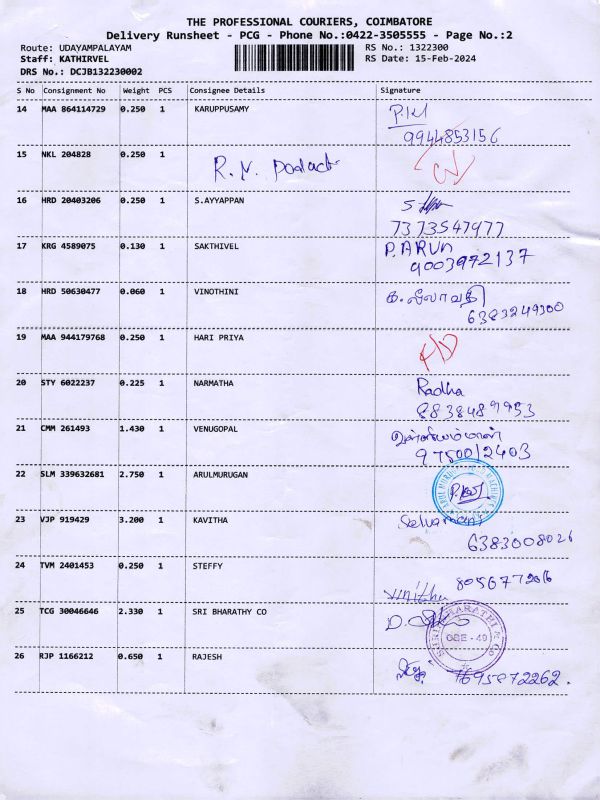 THE PROFESSIONAL COURIERS, COIMBATORE
Delivery Runsheet - PCG - Phone No.:0422-3505555 - Page No.:2
Route: UDAYAMPALAYAM RS No.: 1322300
Staff: KATHIRVEL RS Date: 15-Feb-2024
DRS No.: DCJB132230002
S No Consignment No Weight PCS Consignee Details Signature
14 MAA 864114729 0.250 1 KARUPPUSAMY
9944853156
15 NKL 204828 0.250 1
R. N.
16 HRD 20403206 0.250 1 S.AYYAPPAN
7373547977
17 KRG 4589075 0.130 1 SAKTHIVEL P. ARUN
9003972137
18 HRD 50630477 0.060 1 VINOTHINI க. லீலாவதி
6383249300
19 MAA 944179768 0.250 1 HARI PRIYA
20 STY 6022237 0.225 1 NARMATHA Radha
8838489953
21 CMM 261493 1.430 1 VENUGOPAL
9750012403
22 SLM 339632681 2.750 1 ARULMURUGAN
23 VJP 919429 3.200 1 KAVITHA Selvamani
6383008026
24 TVM 2401453 0.250 1 STEFFY
8056772016
25 TCG 30046646 2.330 1 SRI BHARATHY CO
CBE - 49
26 RJP 1166212 0.650 1 RAJESH
7695872262.